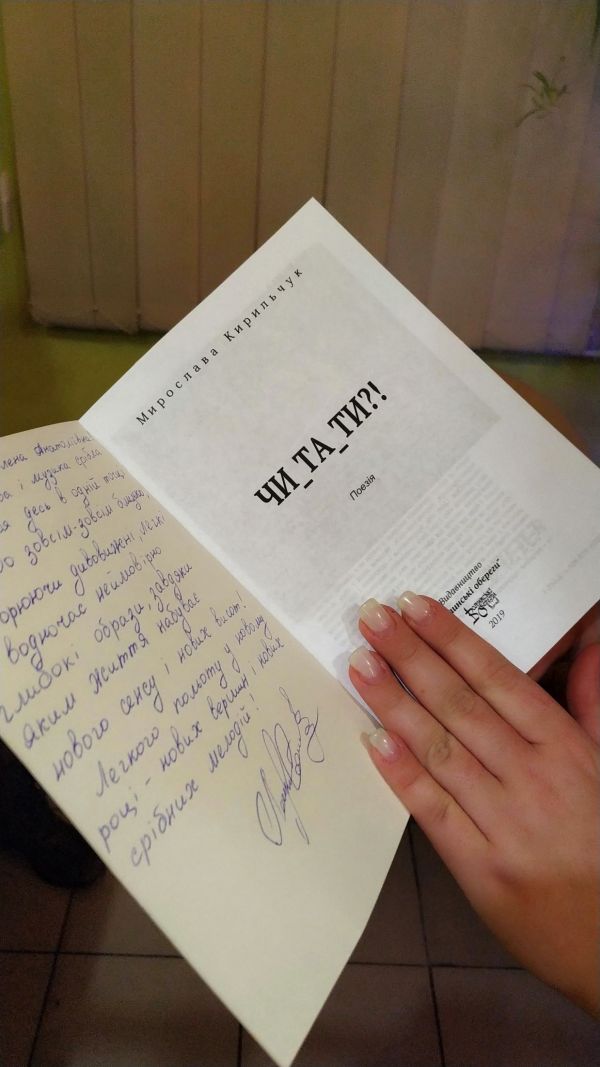 лена Анатоліївна
а і музика срібла
десь в одній точці
зовсім-зовсім близько,
орюючи дивовижні, легкі
водночас неймовірно
глибокі образи, завдяки
яким життя набуває
нового сенсу і нових вимі
Легкого польоту у новому
році - нових вершин і нових
срібних мелодій!
Мирослава Кирильчук
ЧИ_ТА_ТИ?!
Поезія
Видавництво
инські обереги"
2019